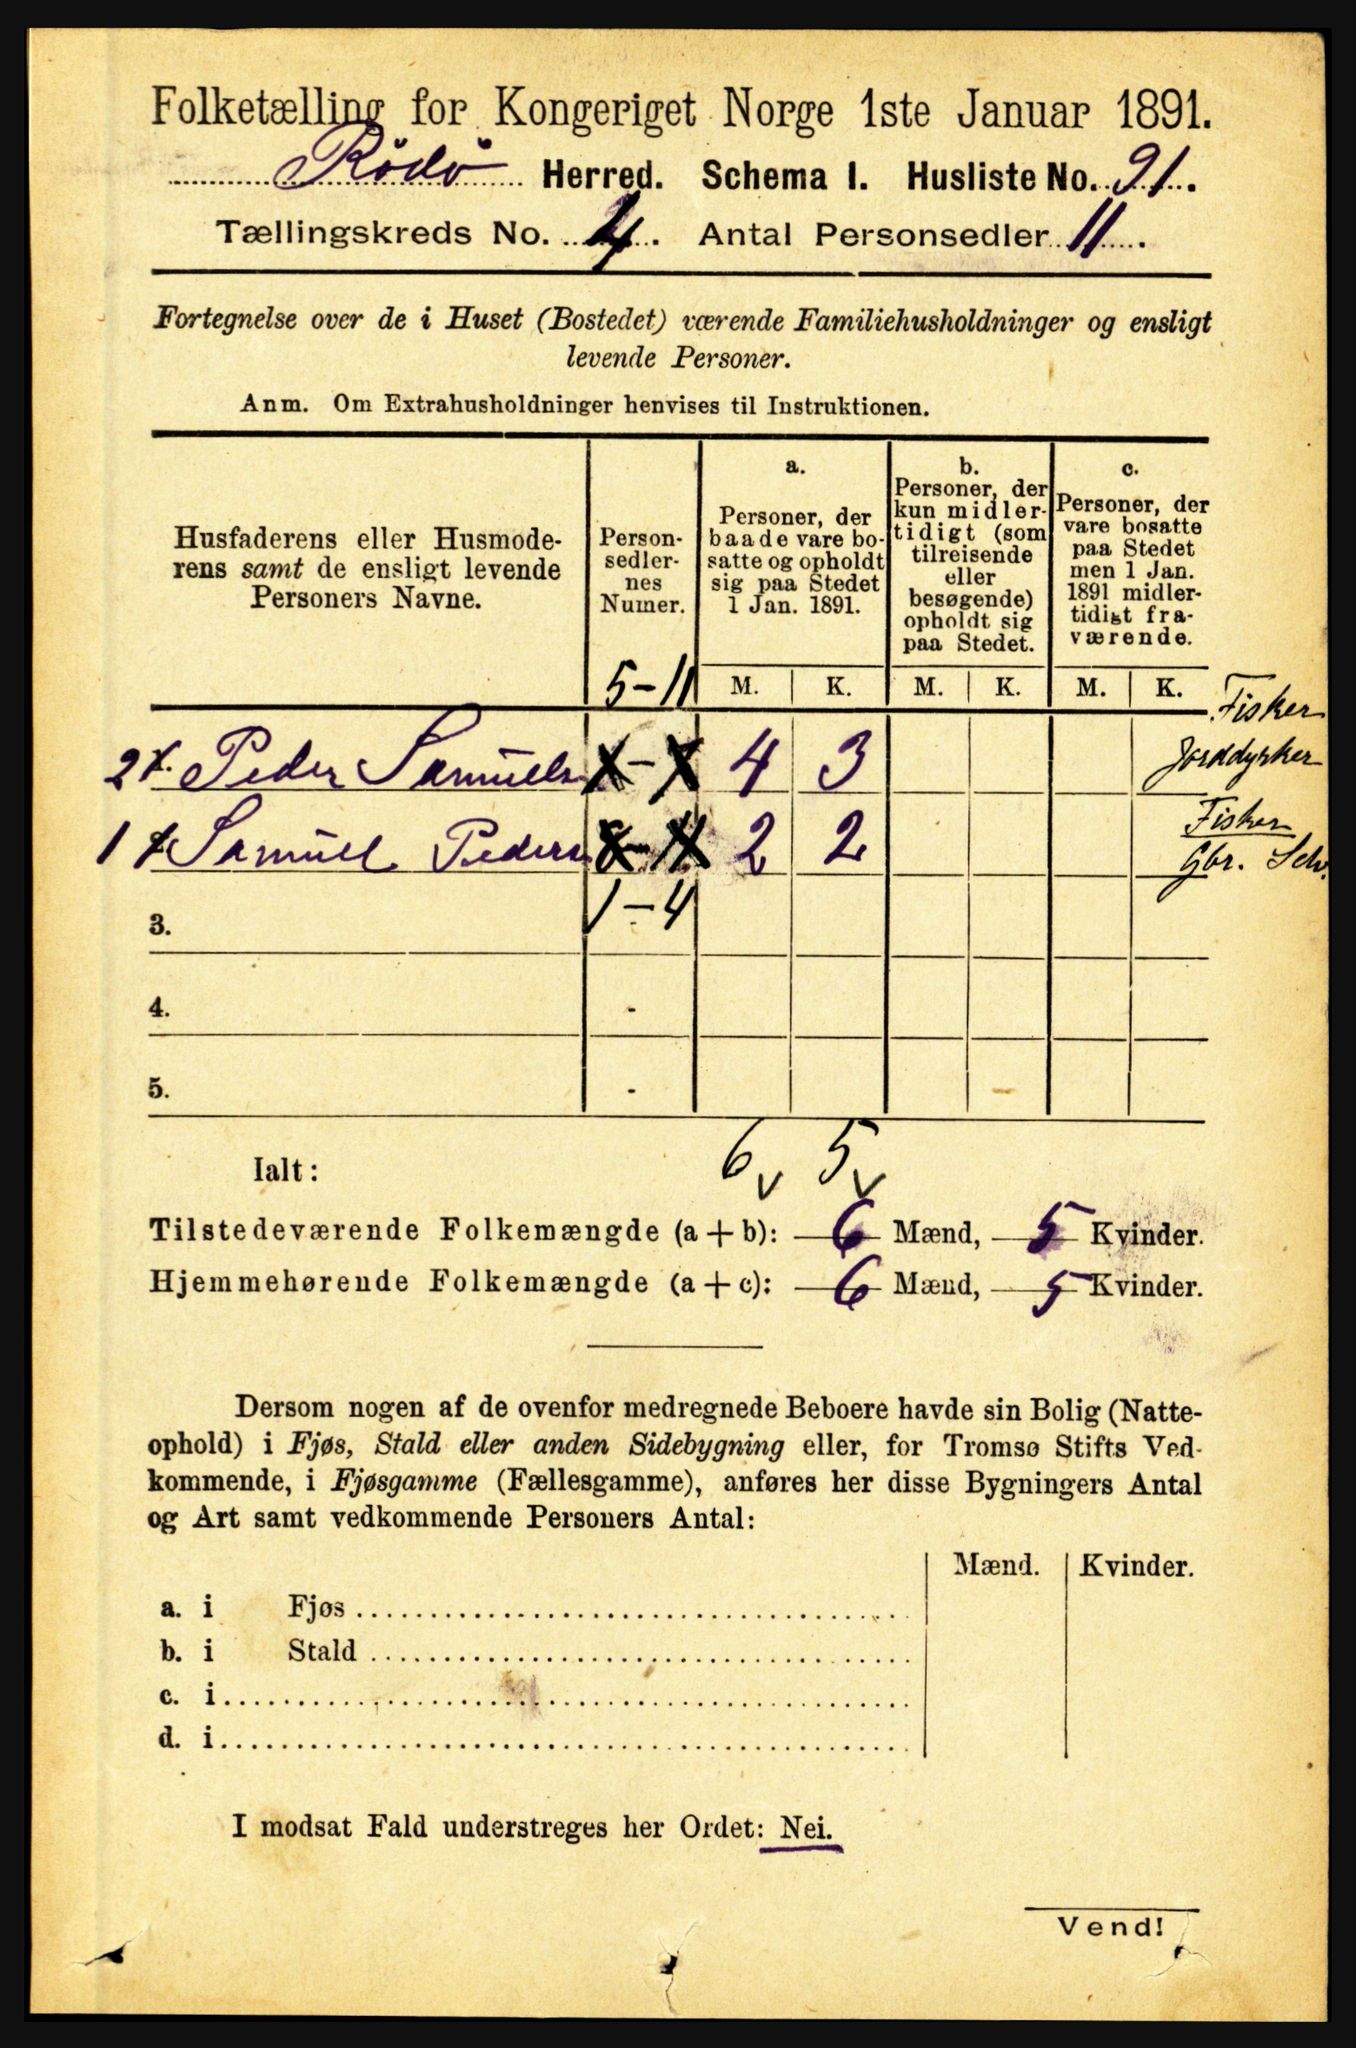 Folketælling for Kongeriget Norge 1ste Januar 1891.
Rödö Herred. Schema I. Husliste No. 91.
Tællingskreds No. 4. Antal Personsedler 11.
Fortegnelse over de i Huset (Bostedet) værende Familiehusholdninger og ensligt
levende Personer.
Anm. Om Extrahusholdninger henvises til Instruktionen.
Husfaderens eller Husmode-
rens samt de ensligt levende
Personers Navne.
Person-
sedler-
nes
Numer.
5-11
a.
Personer, der
baade vare bo-
satte og opholdt
sig paa Stedet
1 Jan. 1891.
b.
Personer, der
kun midler-
tidigt (som
tilreisende
eller
besøgende)
opholdt sig
paa Stedet.
c.
Personer, der
vare bosatte
paa Stedet
men 1 Jan.
1891 midler-
tidigt fra-
værende.
M. K. M. K. M. K.
Fisker
2 Peder Samuels 4 3 Jorddyrker
Fisker
1 Samuel Peders 8-11 2 2 Gbr. Selv.
3. 1-4
4. -
5. -
6 5
Ialt:
Tilstedeværende Folkemængde (a + b): 6 Mænd, 5 Kvinder.
Hjemmehørende Folkemængde (a + c): 6 Mænd, 5 Kvinder.
Dersom nogen af de ovenfor medregnede Beboere havde sin Bolig (Natte-
ophold) i Fjøs, Stald eller anden Sidebygning eller, for Tromsø Stifts Ved-
kommende, i Fjøsgamme (Fællesgamme), anføres her disse Bygningers Antal
og Art samt vedkommende Personers Antal:
Mænd. Kvinder.
a. i Fjøs
b. i Stald
c. i
d. i
I modsat Fald understreges her Ordet: Nei.
Vend!